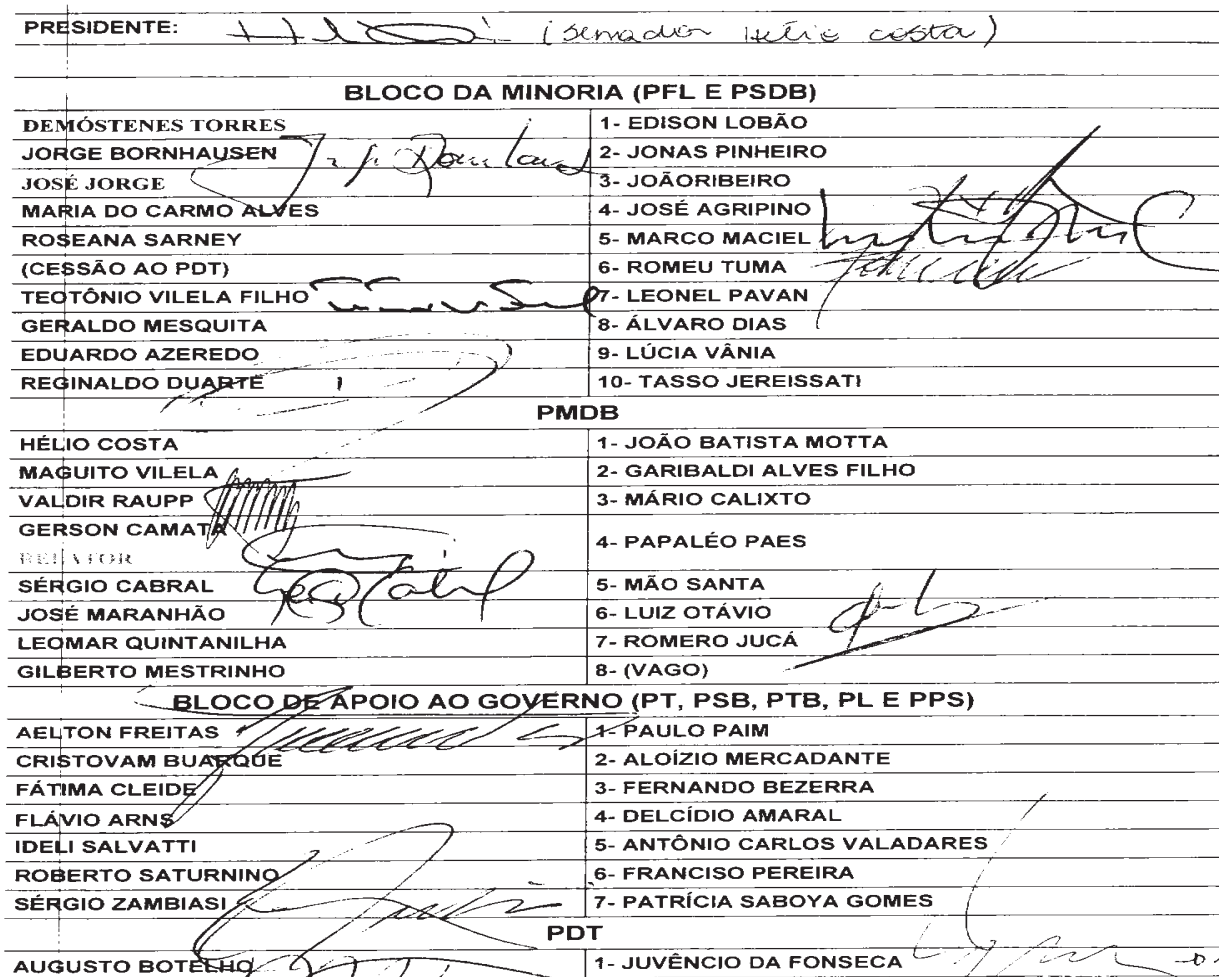 PRESIDENTE: (senador Hélio costa)
BLOCO DA MINORIA (PFL E PSDB)
DEMÓSTENES TORRES 1- EDISON LOBÃO
JORGE BORNHAUSEN 2- JONAS PINHEIRO
JOSÉ JORGE 3- JOÃORIBEIRO
MARIA DO CARMO ALVES 4- JOSÉ AGRIPINO
ROSEANA SARNEY 5- MARCO MACIEL
(CESSÃO AO PDT) 6- ROMEU TUMA
TEOTÔNIO VILELA FILHO 7- LEONEL PAVAN
GERALDO MESQUITA 8- ÁLVARO DIAS
EDUARDO AZEREDO 9- LÚCIA VÂNIA
REGINALDO DUARTE 10- TASSO JEREISSATI
PMDB
HÉLIO COSTA 1- JOÃO BATISTA MOTTA
MAGUITO VILELA 2- GARIBALDI ALVES FILHO
VALDIR RAUPP 3- MÁRIO CALIXTO
GERSON CAMATA
RELATOR 4- PAPALÉO PAES
SÉRGIO CABRAL 5- MÃO SANTA
JOSÉ MARANHÃO 6- LUIZ OTÁVIO
LEOMAR QUINTANILHA 7- ROMERO JUCÁ
GILBERTO MESTRINHO 8- (VAGO)
BLOCO DE APOIO AO GOVERNO (PT, PSB, PTB, PL E PPS)
AELTON FREITAS 1- PAULO PAIM
CRISTOVAM BUARQUE 2- ALOÍZIO MERCADANTE
FÁTIMA CLEIDE 3- FERNANDO BEZERRA
FLÁVIO ARNS 4- DELCÍDIO AMARAL
IDELI SALVATTI 5- ANTÔNIO CARLOS VALADARES
ROBERTO SATURNINO 6- FRANCISO PEREIRA
SÉRGIO ZAMBIASI 7- PATRÍCIA SABOYA GOMES
PDT
AUGUSTO BOTELHO 1- JUVÊNCIO DA FONSECA